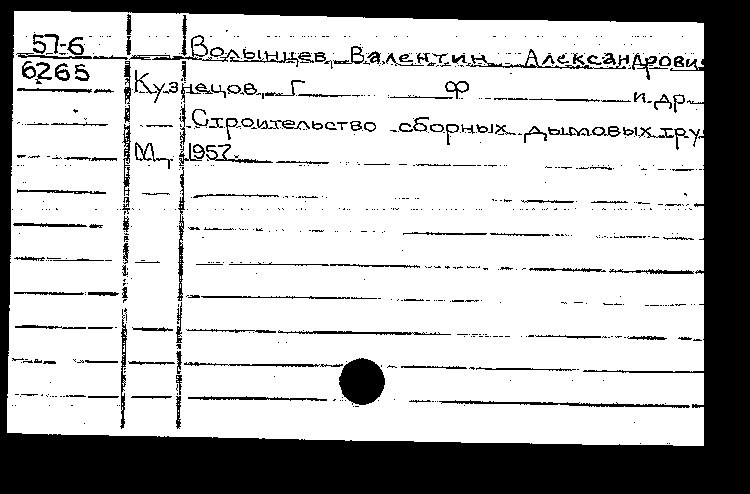 57-6
Волынцев, Валентин Александрови
6265
Кузнецов, Г Ф и др
Строительство сборных дымовых тру
М, 1957.